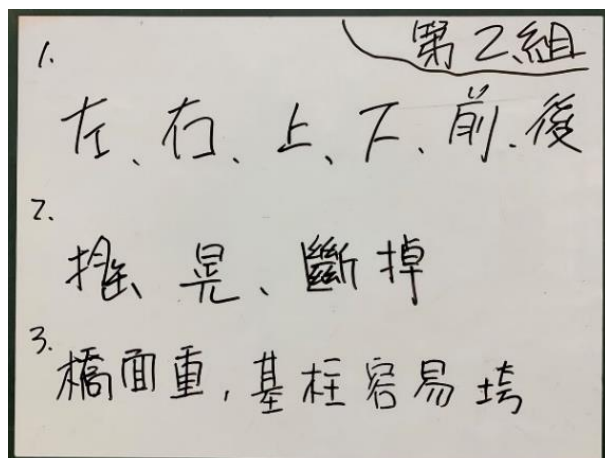 第2組
1.
左、右、上、下、前、後
2.
搖晃、斷掉
3.
橋面重,基柱容易垮